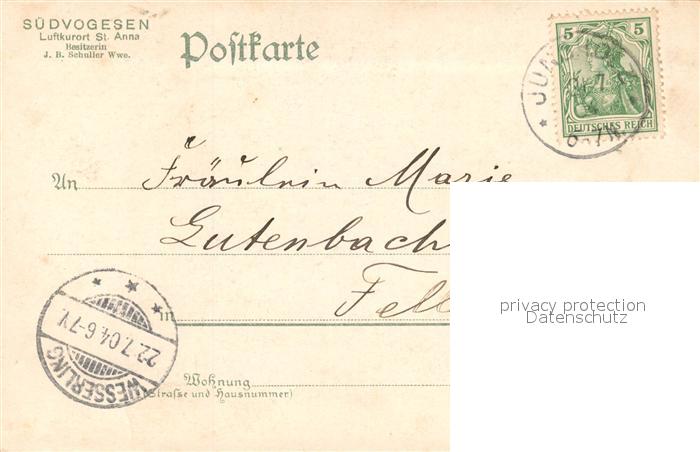 SÜDVOGESEN
Luftkurort St. Anna
Besitzerin
J. B. Schuller Wwe.
Postkarte
5 5
DEUTSCHES REICH
An Fräulein Marie
Gutenbach
in Fell
Wohnung
(Strasse und Hausnummer)
22.7.04.6-7V.
WESSERLING
privacy protection
Datenschutz